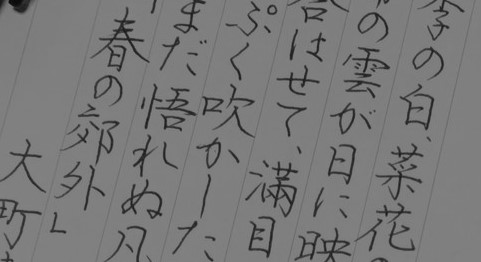 李の白、菜花
の雲が目に映
はせて、満目
ぷく吹かした
まだ悟れぬ凡
春の郊外」
大町